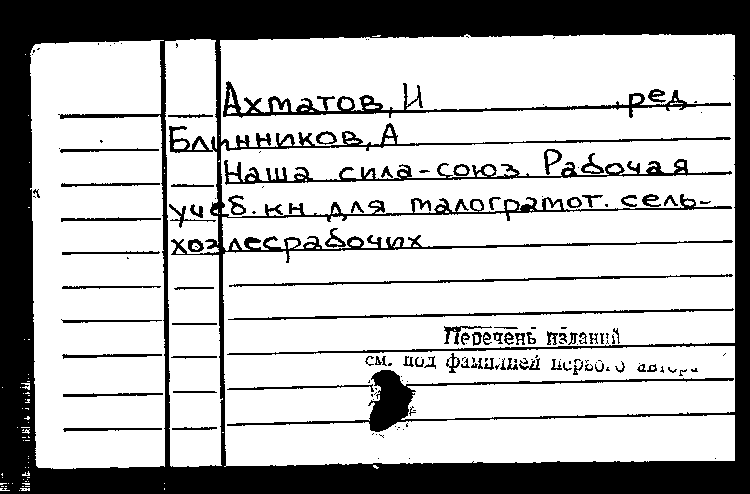 Ахматов, И ред.
Блинников, А
Наша сила-союз. Рабочая
учеб. кн. для малограмот. сель-
хозлесрабочих
Перечень изданий
см. под фамилией первого автора